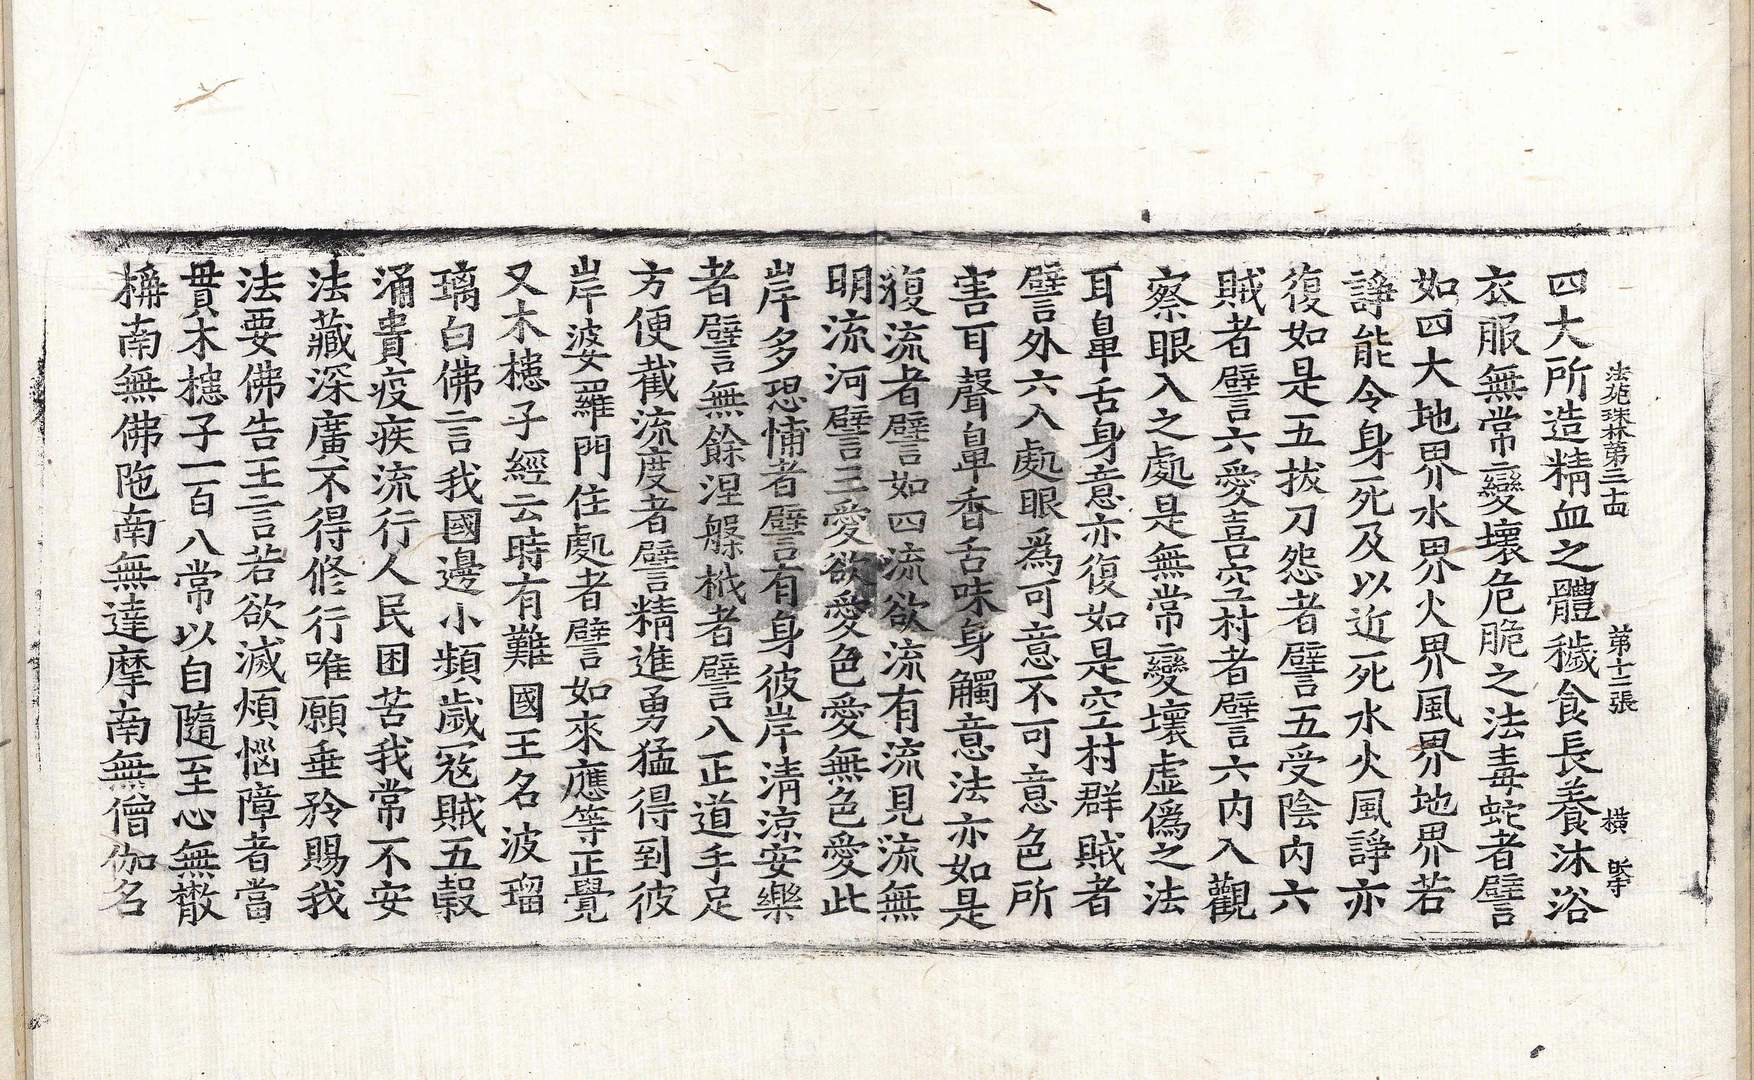 法苑珠林第三十四　第十二張　橫
四大所造精血之體穢食長養沐浴
衣服無常變壞危脆之法毒蛇者譬
如四大地界水界火界風界地界若
諍能令身死及以近死水火風諍亦
復如是五拔刀怨者譬言五受陰內六
賊者譬言六愛喜空村者譬言六內入觀
察眼入之處是無常變壞虛偽之法
耳鼻舌身意亦復如是空村群賊者
譬言外六入處眼為可意不可意色所
害耳聲鼻香舌味身觸意法亦如是
澓流者譬言如四流欲流有流見流無
明流河譬言三愛欲愛色愛無色愛此
岸多恐怖者譬言有身彼岸清涼安樂
者譬言無餘涅槃栰者譬言八正道手足
方便截流度者譬言精進勇猛得到彼
岸婆羅門住處者譬言如來應等正覺
又木槵子經云時有難國王名波瑠
璃白佛言我國邊小頻歲寇賊五穀
涌貴疫疾流行人民困苦我常不安
法藏深廣不得修行唯願垂矜賜我
法要佛告王言若欲滅煩惱障者當
貫木槵子一百八常以自隨至心無散
稱南無佛陁南無達摩南無僧伽名